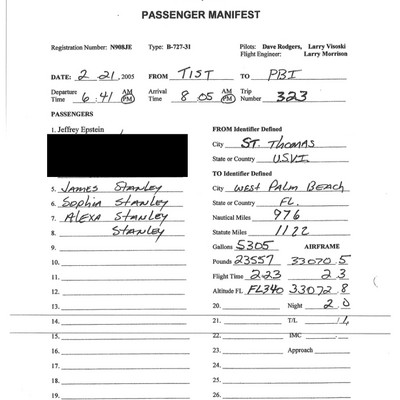 PASSENGER MANIFEST
Registration Number: N908JE Type: B-727-31 Pilots: Dave Rodgers, Larry Visoski
Flight Engineer: Larry Morrison
DATE: 2 21, 2005 FROM TIST TO PBI
Departure Time 6:41 AM PM Arrival Time 8 05 AM PM Trip Number 323
PASSENGERS
1. Jeffrey Epstein FROM Identifier Defined
City ST. THOMAS
State or Country U.S.V.I.
TO Identifier Defined
5. JAMES STANLEY City WEST PALM BEACH
6. Sophia STANLEY State or Country FL.
7. ALEXA STANLEY Nautical Miles 976
8. STANLEY Statute Miles 1122
9. Gallons 5305 AIRFRAME
10. Pounds 23557 33070 5
11. Flight Time 2:23 2 3
12. Altitude FL FL340 33072 8
13. 20. Night 2.0
14. 21. T/L
15. 22. IMC
16. 23. Approach
17. 24.
18. 25.
19. 26.